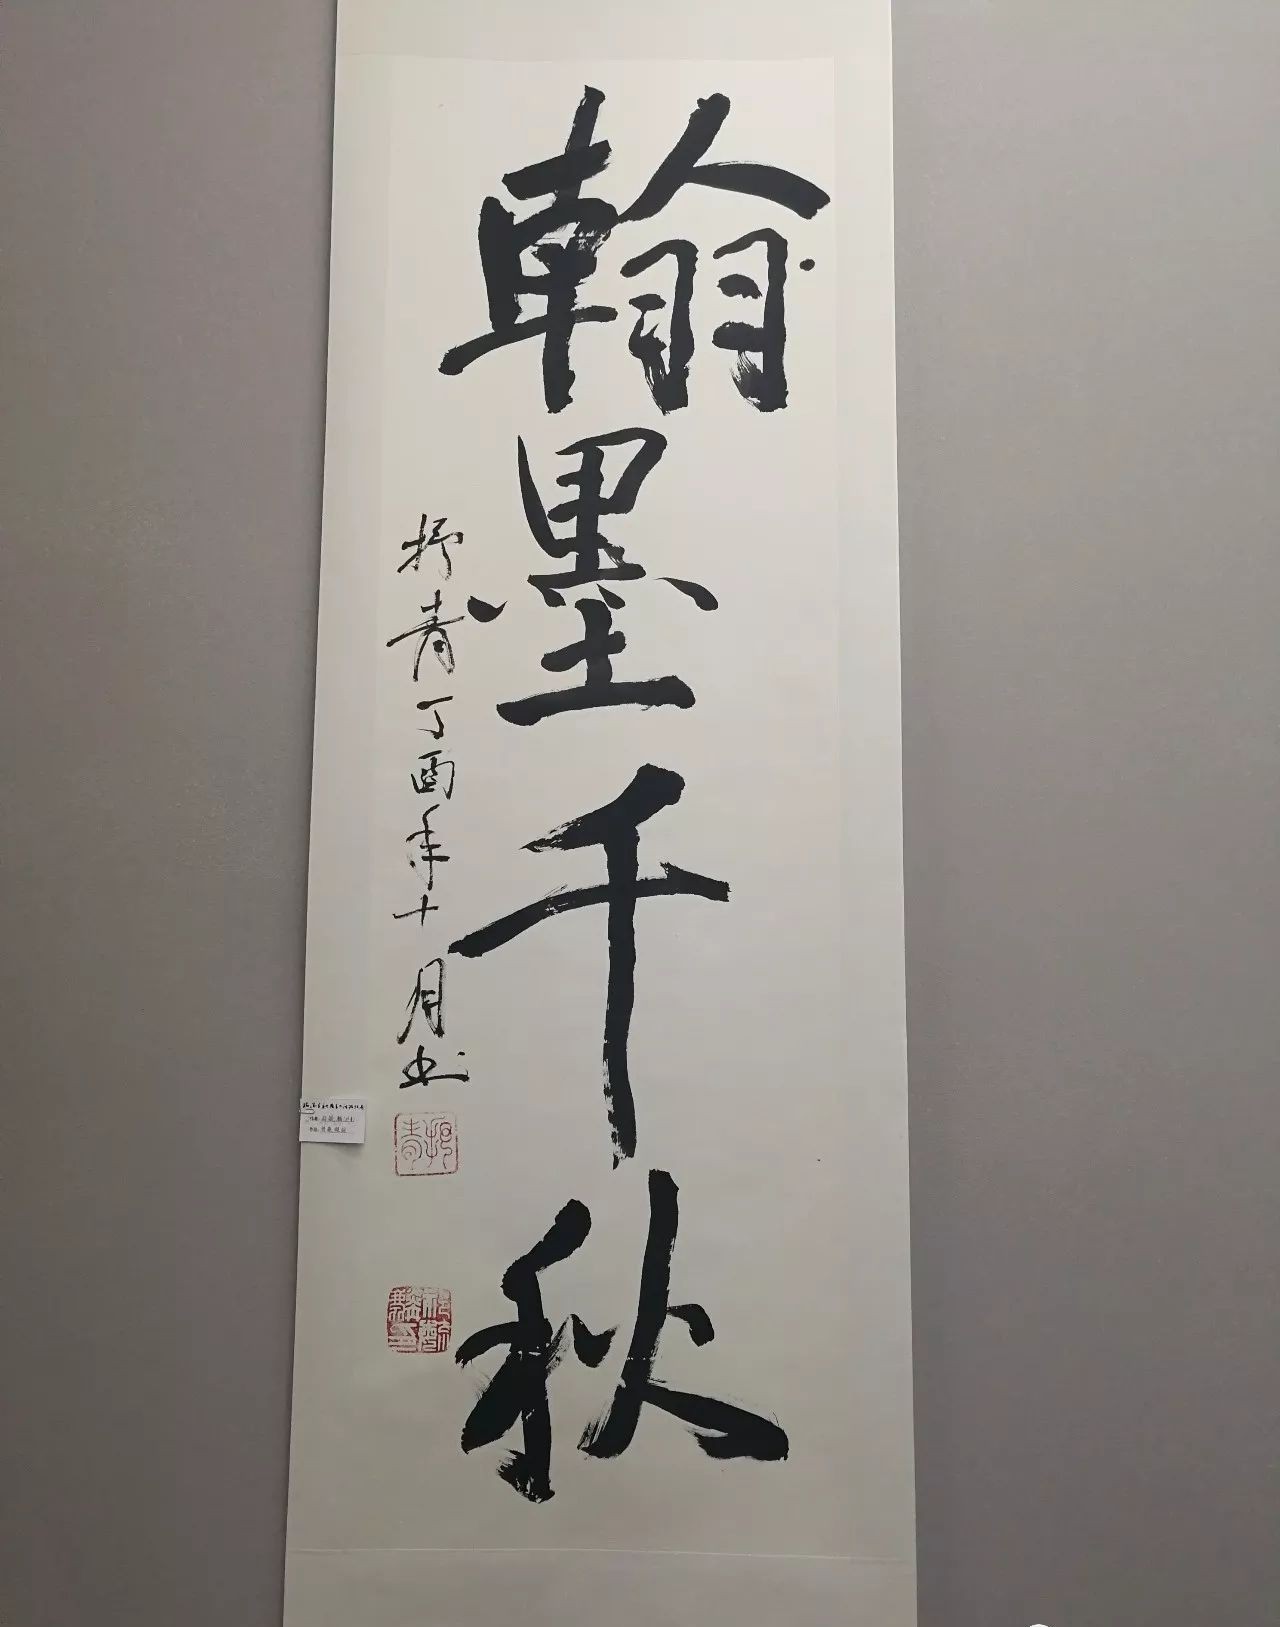 翰墨千秋
抒青丁酉年十月书